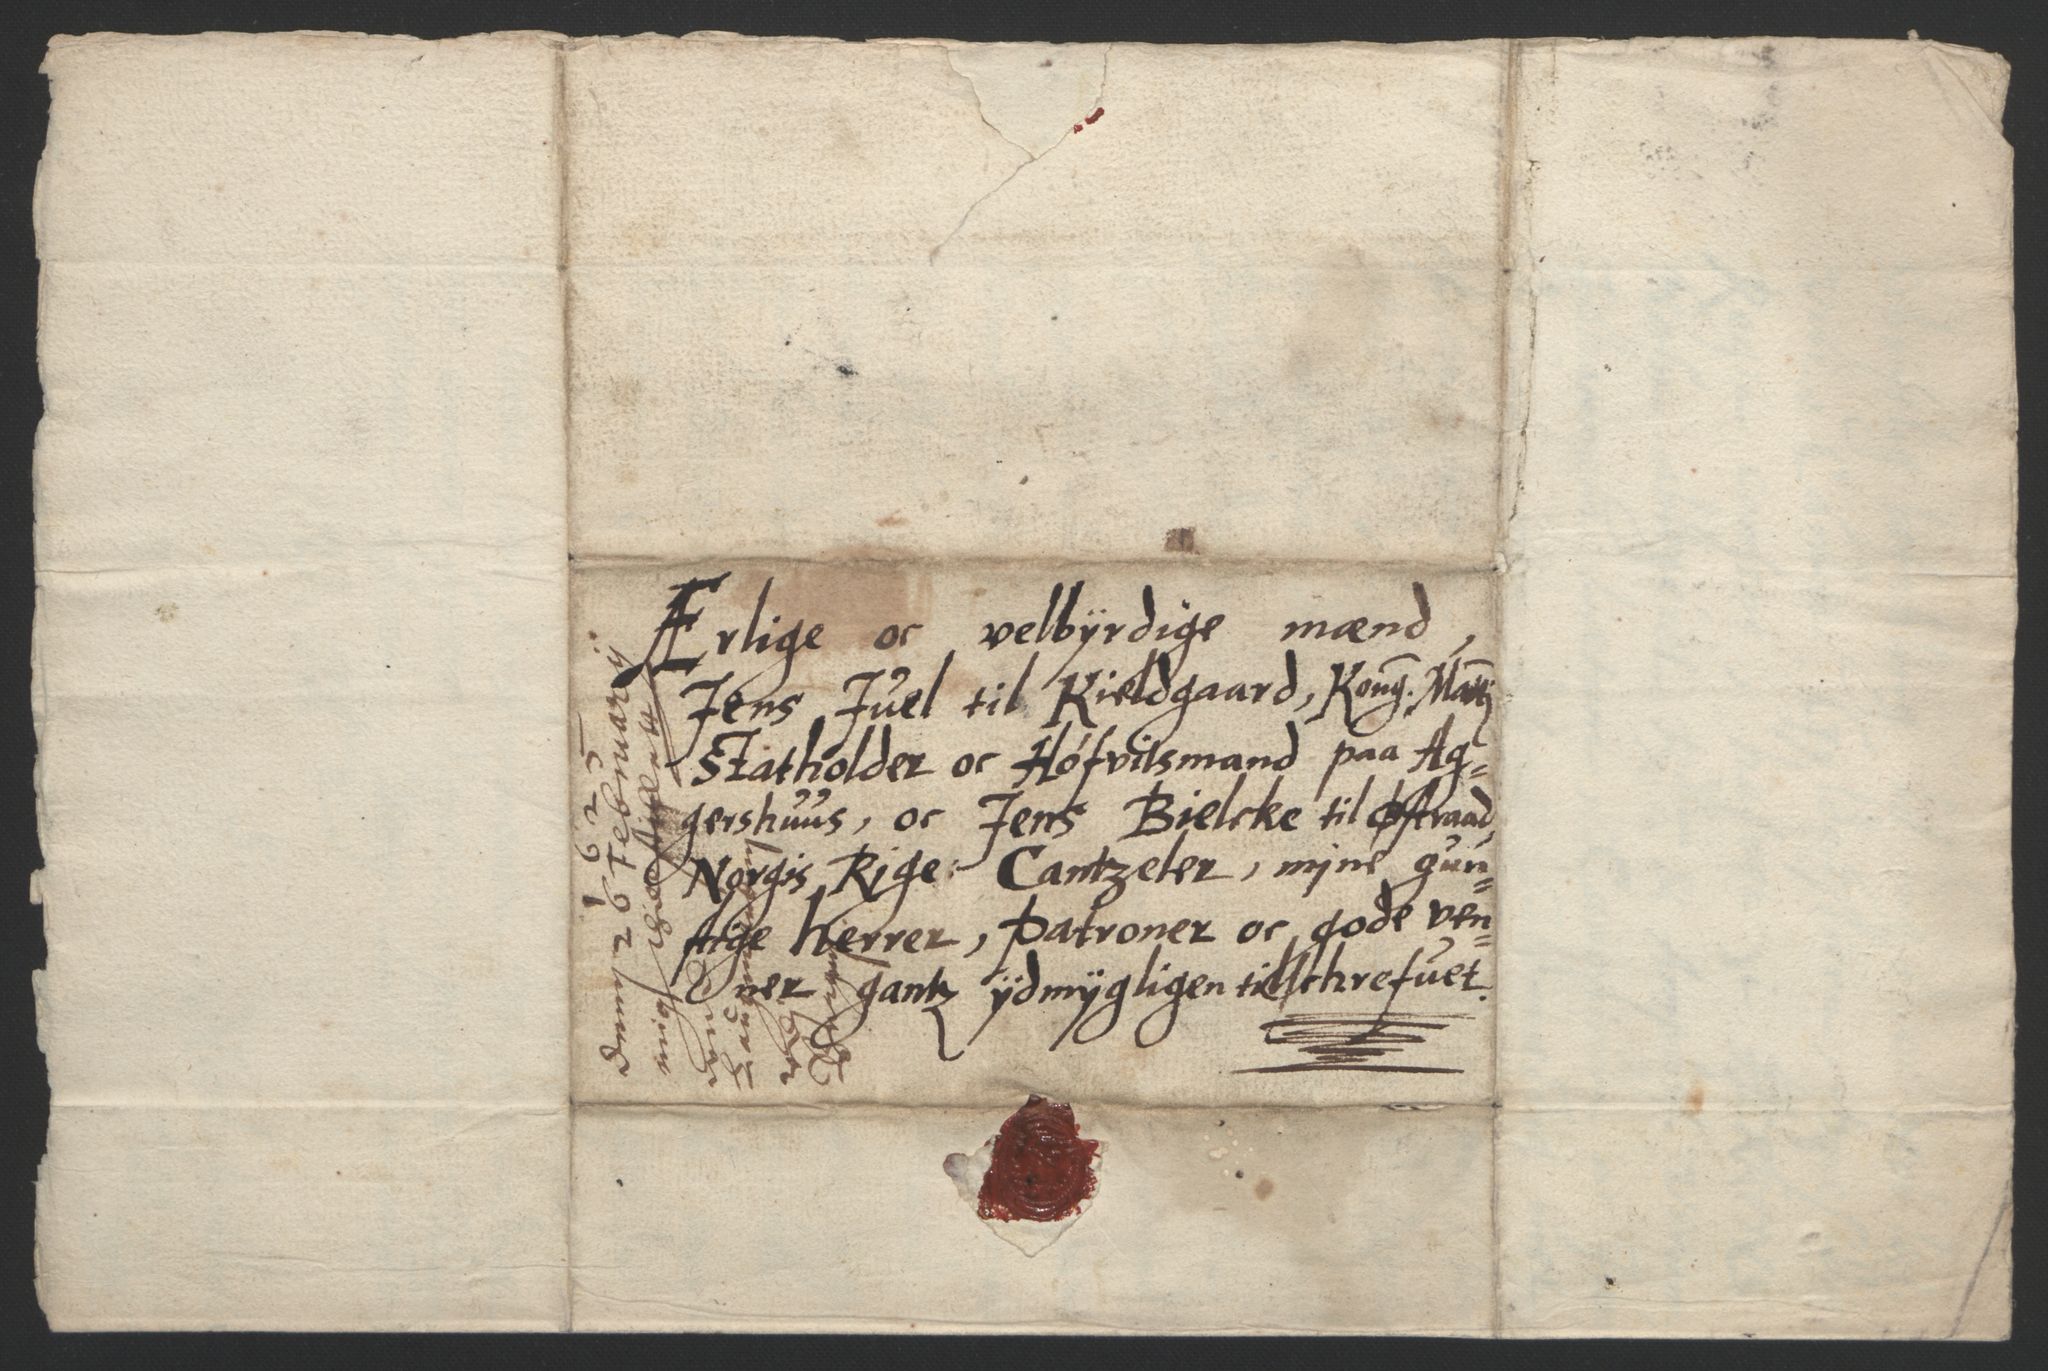 Ærlige oc velbÿrdige mænd,
Jens Juel til Kieldgaard, Kong. Maytz
Statholder oc Höfvitsmand paa Ag=
gershuus, oc Jens Bielcke til Østraad,
Norgis Rige Cantzeler, mine gun=
stige herrer, patroner oc gode ven=
ner gantz ÿdmÿgligen tillschrefuet.
1625
denn 26 Februarÿ
mig